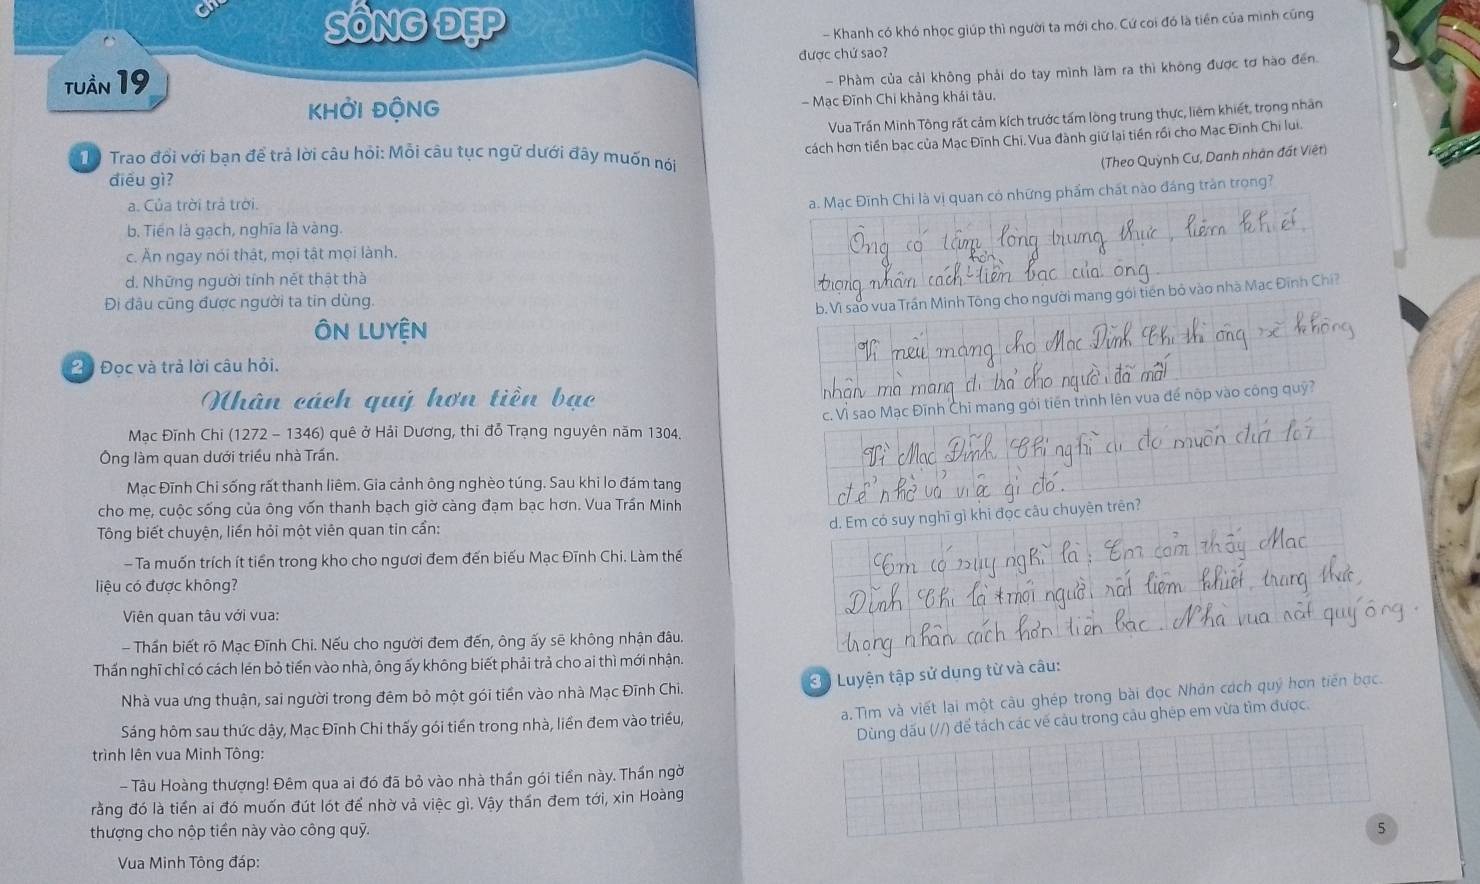 SỐNG ĐẸP
TUẦN 19
KHỞI ĐỘNG
1 Trao đổi với bạn để trả lời câu hỏi: Mỗi câu tục ngữ dưới đây muốn nói
điều gì?
a. Của trời trả trời.
b. Tiền là gạch, nghĩa là vàng.
c. Ăn ngay nói thật, mọi tật mọi lành.
d. Những người tính nết thật thà
Đi đâu cũng được người ta tin dùng.
ÔN LUYỆN
2 Đọc và trả lời câu hỏi.
Nhân cách quý hơn tiền bạc
Mạc Đĩnh Chi (1272 – 1346) quê ở Hải Dương, thi đỗ Trạng nguyên năm 1304.
Ông làm quan dưới triều nhà Trần.
Mạc Đĩnh Chi sống rất thanh liêm. Gia cảnh ông nghèo túng. Sau khi lo đám tang
cho mẹ, cuộc sống của ông vốn thanh bạch giờ càng đạm bạc hơn. Vua Trần Minh
Tông biết chuyện, liền hỏi một viên quan tin cẩn:
– Ta muốn trích ít tiền trong kho cho ngươi đem đến biếu Mạc Đĩnh Chi. Làm thế
liệu có được không?
Viên quan tâu với vua:
– Thần biết rõ Mạc Đĩnh Chi. Nếu cho người đem đến, ông ấy sẽ không nhận đâu.
Thần nghĩ chỉ có cách lén bỏ tiền vào nhà, ông ấy không biết phải trả cho ai thì mới nhận.
Nhà vua ưng thuận, sai người trong đêm bỏ một gói tiền vào nhà Mạc Đĩnh Chi.
Sáng hôm sau thức dậy, Mạc Đĩnh Chi thấy gói tiền trong nhà, liền đem vào triều,
trình lên vua Minh Tông:
– Tâu Hoàng thượng! Đêm qua ai đó đã bỏ vào nhà thần gói tiền này. Thần ngờ
rằng đó là tiền ai đó muốn đút lót để nhờ vả việc gì. Vậy thần đem tới, xin Hoàng
thượng cho nộp tiền này vào công quỹ.
Vua Minh Tông đáp:
– Khanh có khó nhọc giúp thì người ta mới cho. Cứ coi đó là tiền của mình cũng
được chứ sao?
– Phàm của cải không phải do tay mình làm ra thì không được tơ hào đến.
– Mạc Đĩnh Chi khảng khái tâu.
Vua Trần Minh Tông rất cảm kích trước tấm lòng trung thực, liêm khiết, trọng nhân
cách hơn tiền bạc của Mạc Đĩnh Chi. Vua đành giữ lại tiền rồi cho Mạc Đĩnh Chi lui.
(Theo Quỳnh Cư, Danh nhân đất Việt)
a. Mạc Đĩnh Chi là vị quan có những phẩm chất nào đáng trân trọng?
Ông có tấm lòng trung thực, liêm khiết
hơn
trọng nhân cách tiền bạc của ông
b. Vì sao vua Trần Minh Tông cho người mang gói tiền bỏ vào nhà Mạc Đĩnh Chi?
Vì nếu mang cho Mạc Đĩnh Chi thì ông sẽ không
nhận mà mang đi trả cho người đã mất
c. Vì sao Mạc Đĩnh Chi mang gói tiền trình lên vua để nộp vào công quỹ?
Vì Mạc Đĩnh Chi nghĩ ai đó muốn đút lót
để nhờ vả việc gì đó.
d. Em có suy nghĩ gì khi đọc câu chuyện trên?
Em có suy nghĩ là: Em cảm thấy Mạc
Đĩnh Chi là một người rất liêm khiết, trung thực,
trọng nhân cách hơn tiền bạc. Nhà vua rất quý ông.
3 Luyện tập sử dụng từ và câu:
a. Tìm và viết lại một câu ghép trong bài đọc Nhân cách quý hơn tiền bạc.
Dùng dấu (//) để tách các vế câu trong câu ghép em vừa tìm được.
5